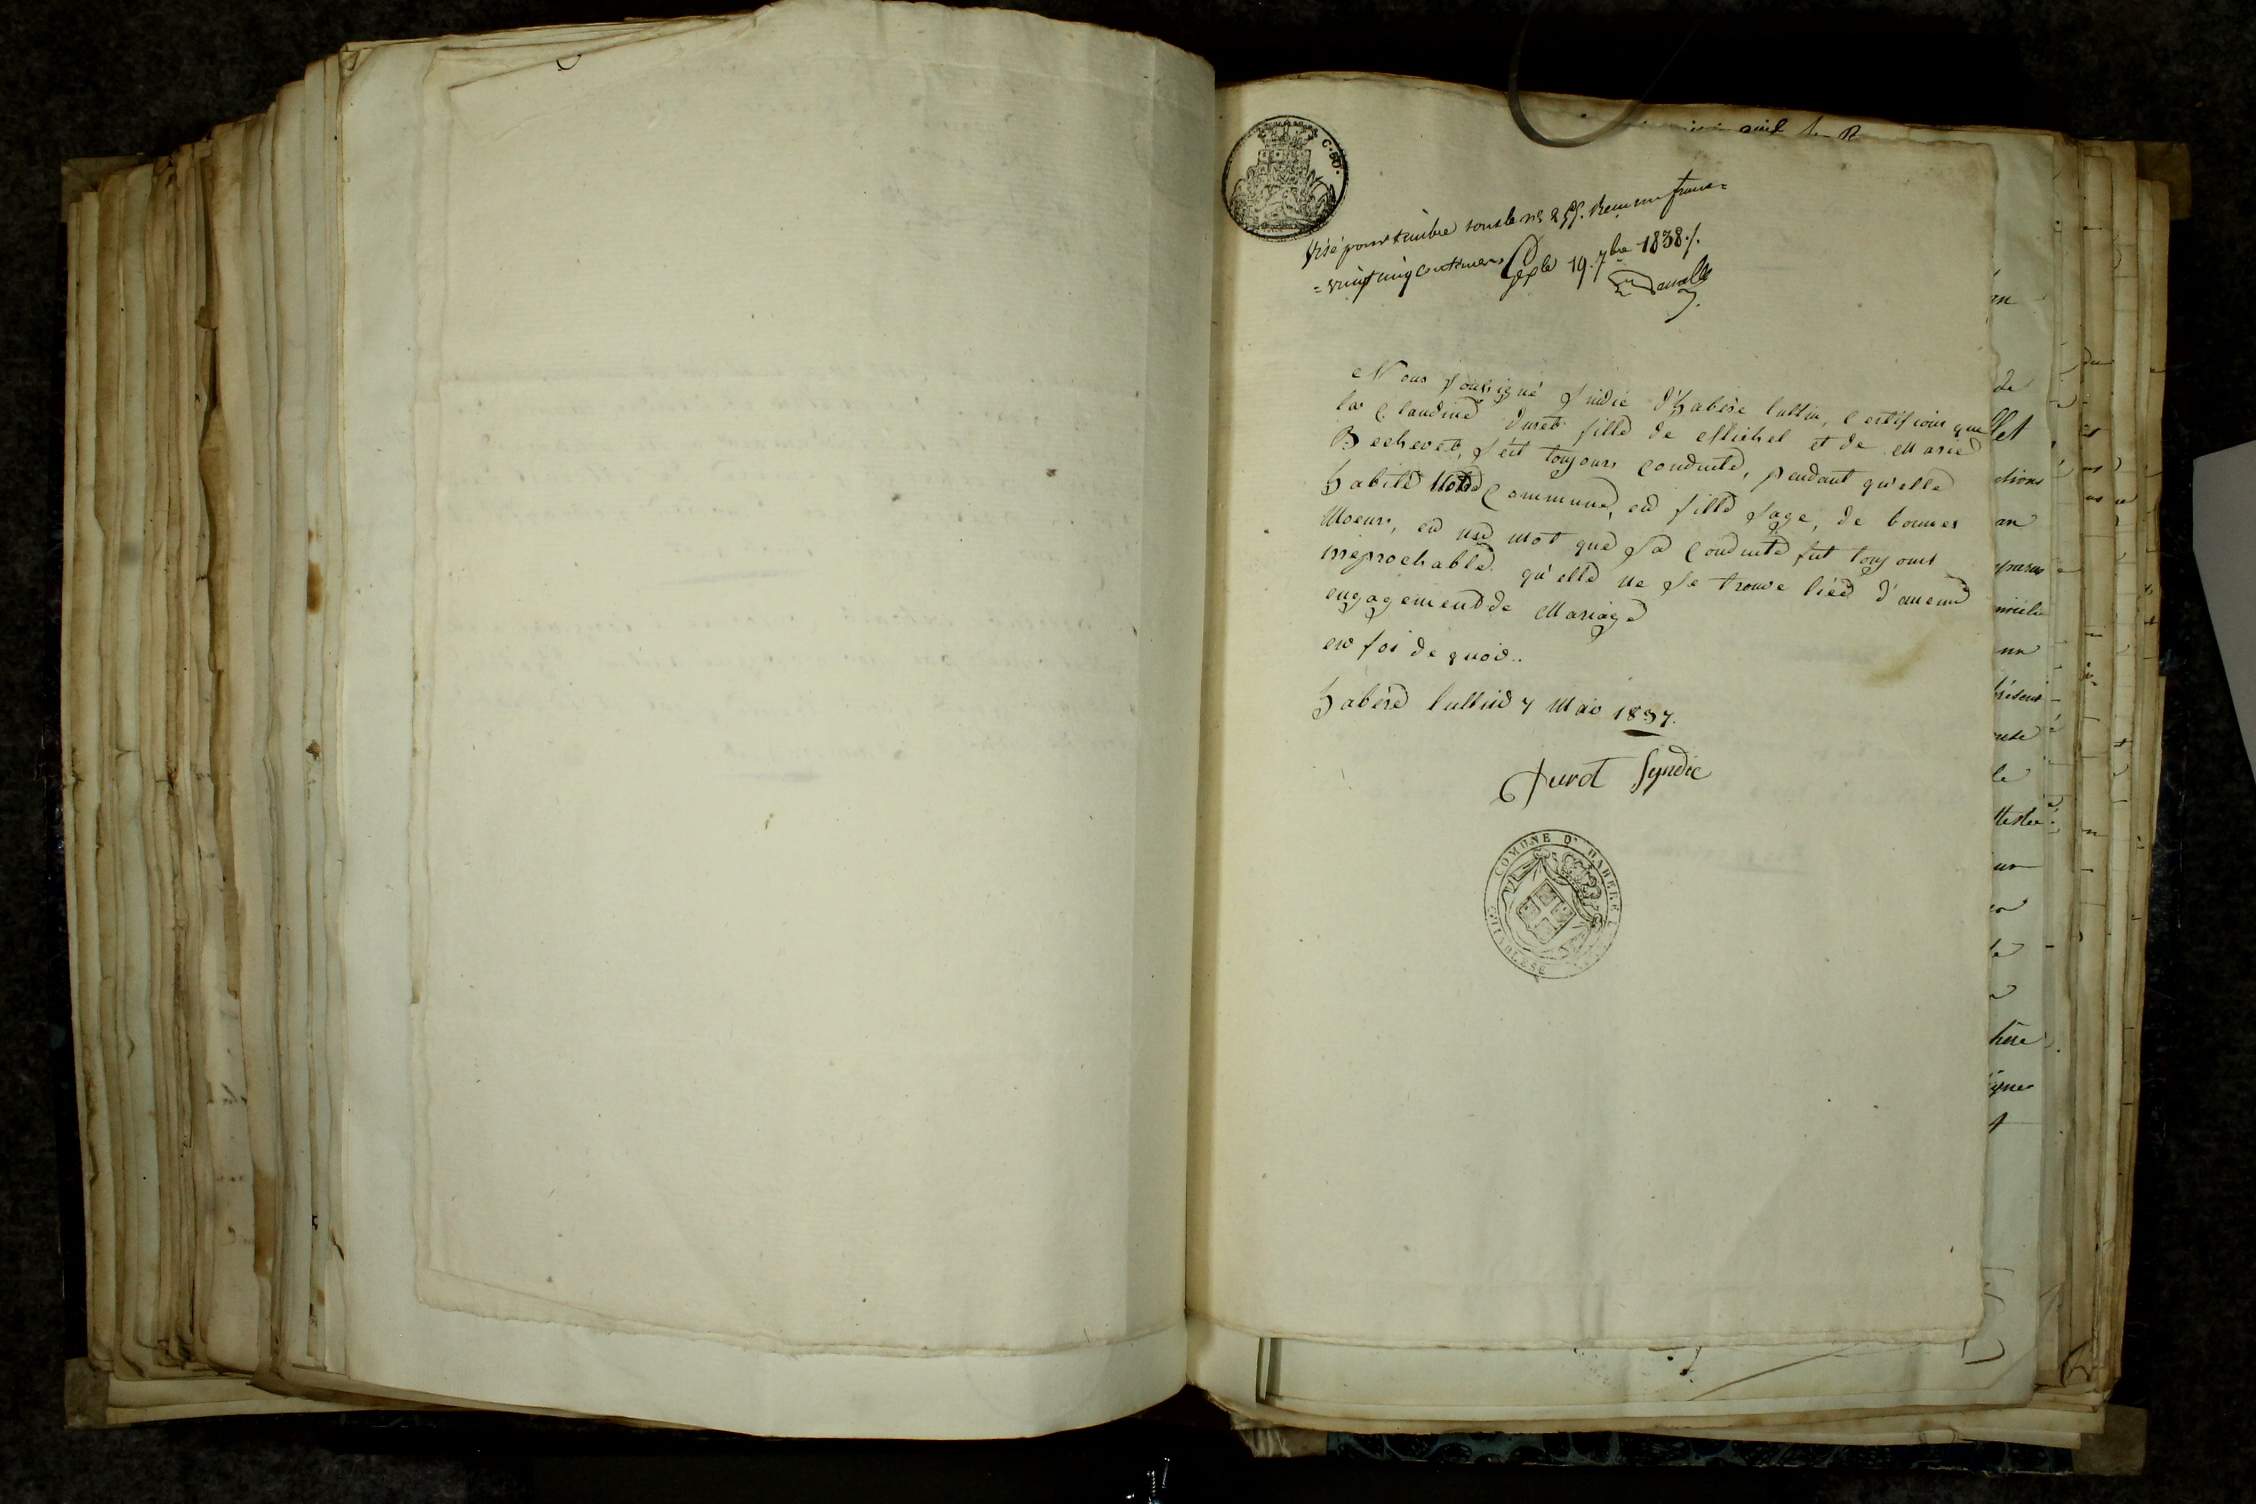 C. 50.
Visé pour timbre sous le n° 255. Reçu un franc=
=vingt cinq centimes Gex le 19. 7bre 1838 ./.
Nous soussigné Sindic d'habère lullin, Certifions que
la Claudine Duret fille de Michel et de Marie
Bechevet, s'est toujours conduite, pendant qu'elle
habité Notre Commune, en fille sage, de bonnes
Moeurs, en un mot que sa Conduite fut toujours
irreprochable. qu'elle ne se trouve liée d'aucun
engagement de Mariage
en foi de quoi..
habère lullin 7 Mai 1837.
Duret Syndic
COMUNE D'HABERE L
CHIABLESE